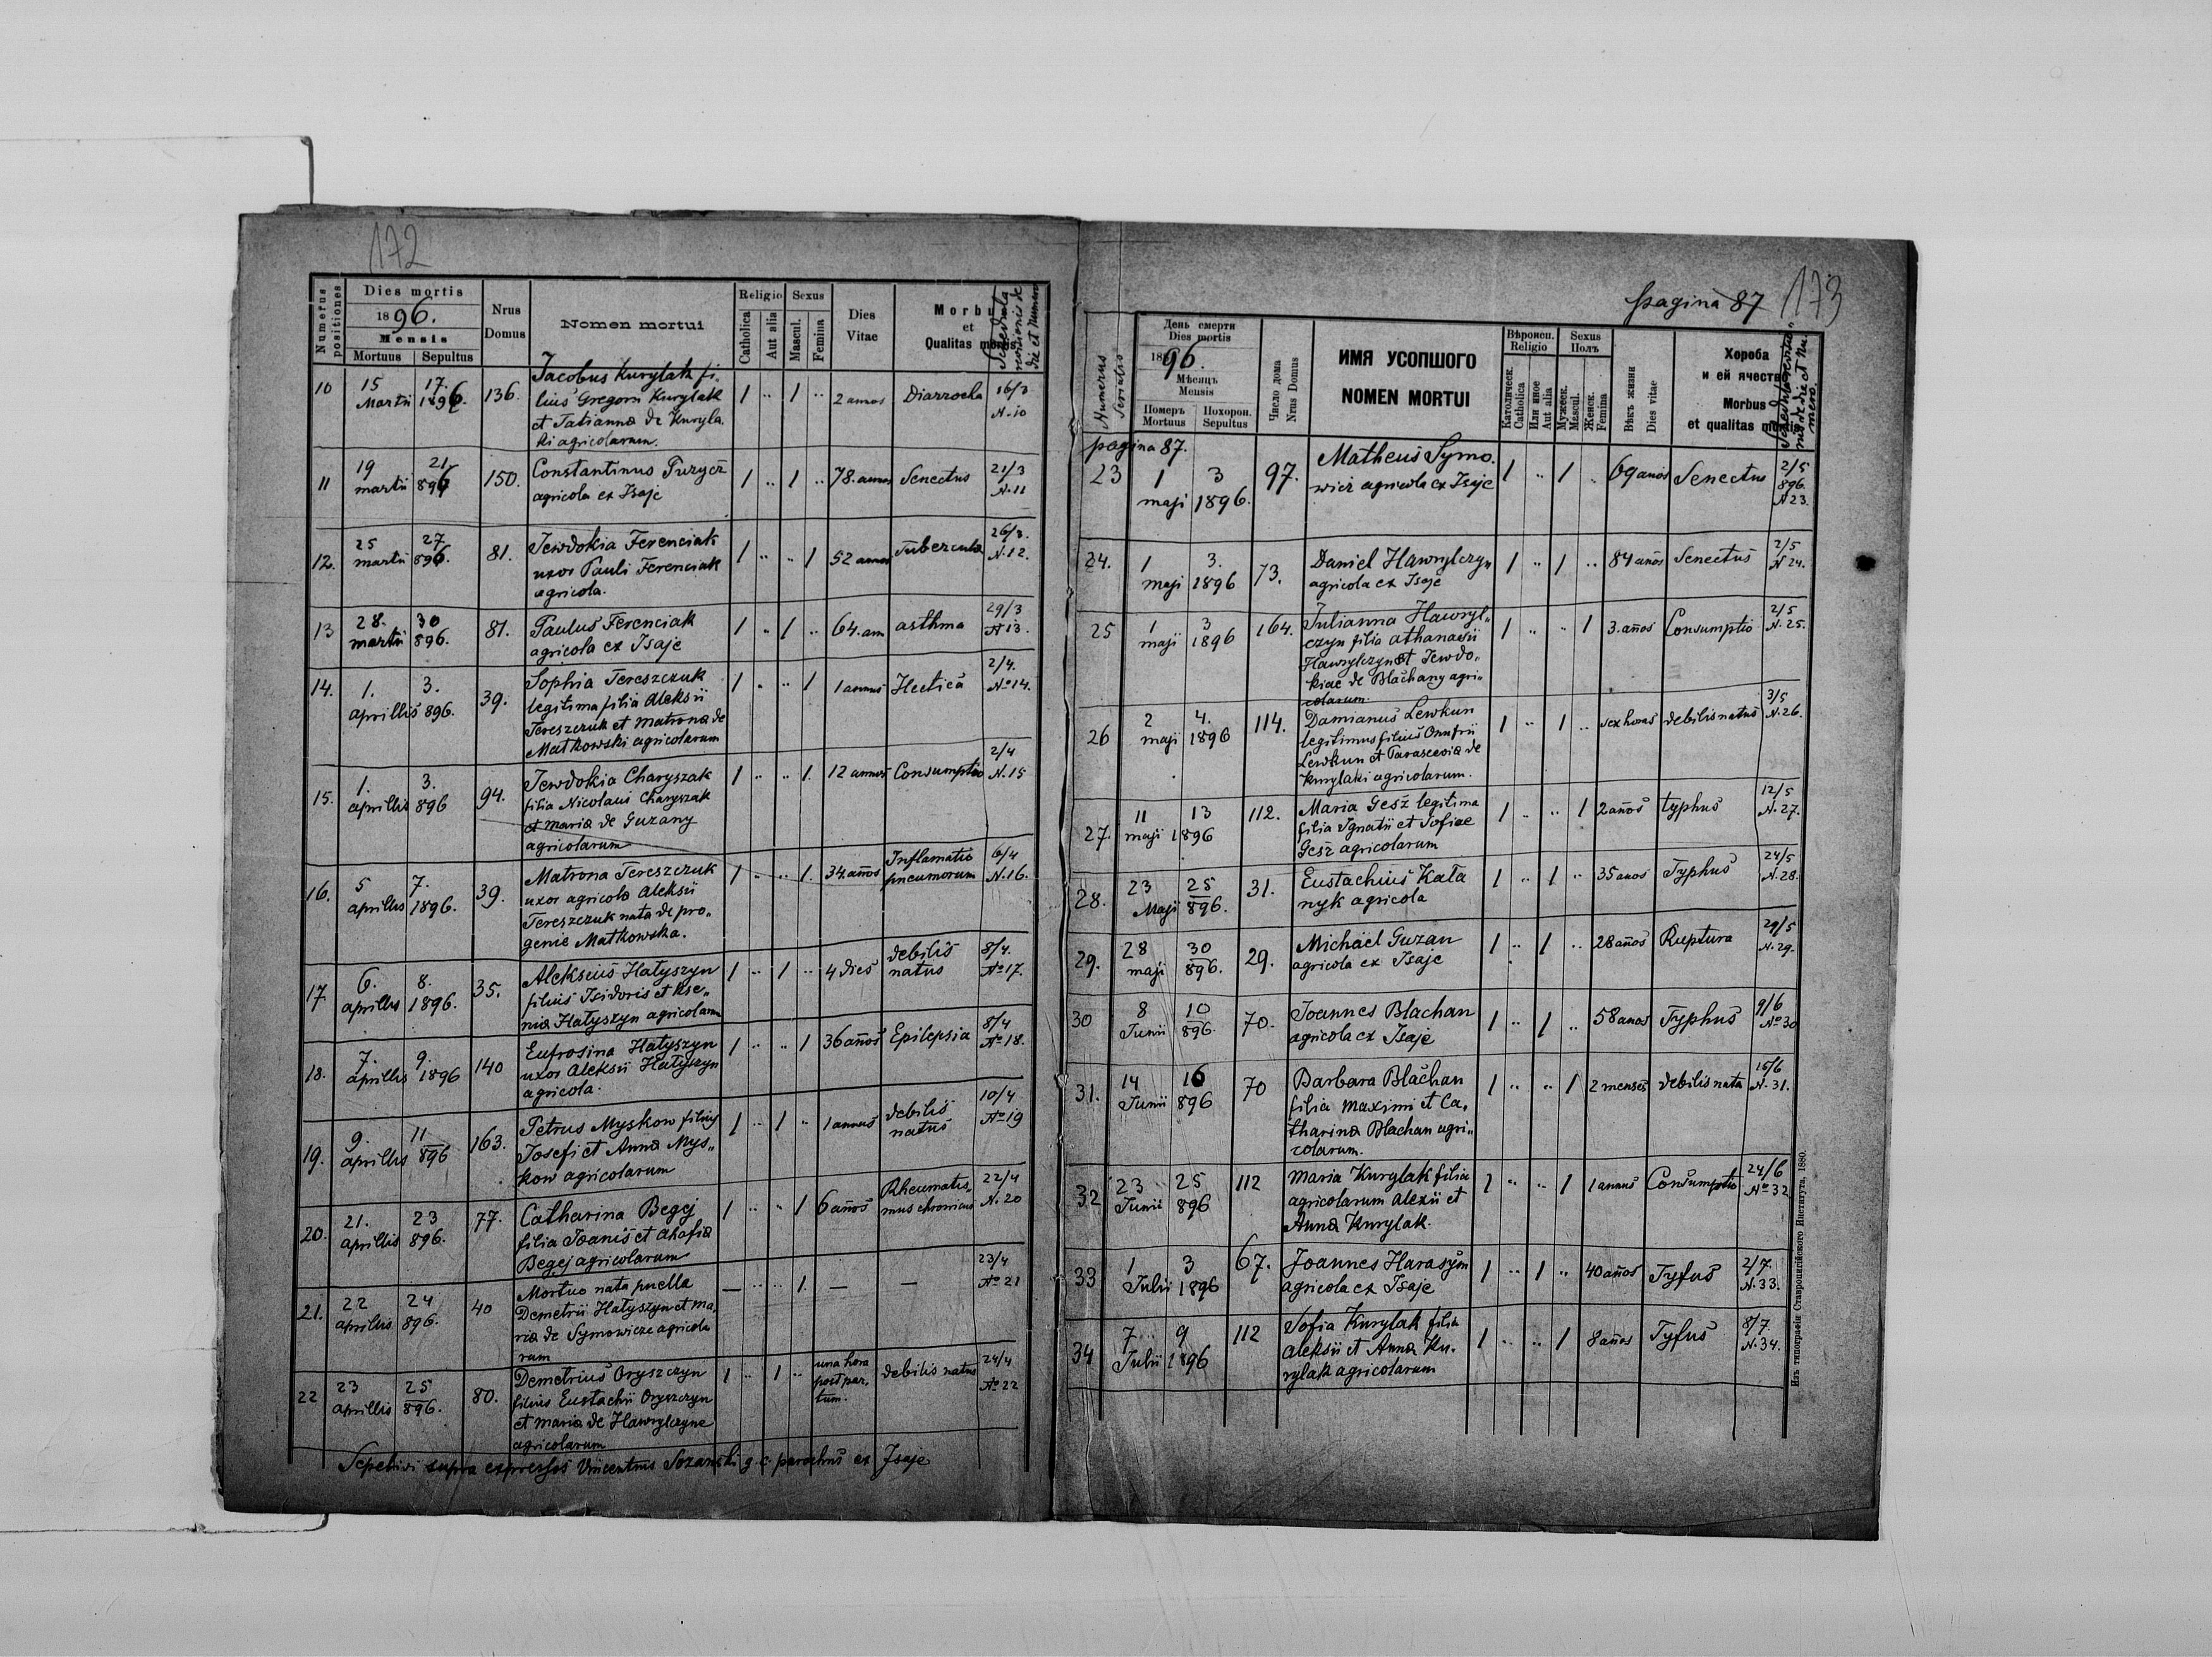 172
Numerus positiones
Dies mortis
1896.
Mensis
Mortuus Sepultus
Nrus Domus
Nomen mortui
Religio
Catholica
Aut alia
Sexus
Mascul.
Femina
Dies Vitae
Morbus et Qualitas mortis
10 15 Martii 17. 1896 136. Jacobus Kurylak fi„ 1 .. 1 .. 2 annos Diarrocha 16/3 N.10
lius Gregorii Kurylak
et Tatianna de Kuryla.
ki agricolarum.
11 19 martii 21 896 150. Constantinus Puzycz 1 .. 1 .. 78. annos Senectus 21/3 N.11
agricola ex Isaje
12. 25 martii 27 896. 81. Jewdokia Ferenciak 1 .. .. 1 52 annos Tubercula 26/3. N.12.
uxor Pauli Ferenciak
agricola.
13 28. martii 30 896. 81. Paulus Ferenciak 1 .. 1 .. 64. an asthma 29/3 No 13.
agricola ex Isaje
14. 1. aprillis 3. 896. 39. Sophia Tereszczuk 1 .. .. 1 1 annus Hectica 2/4. No 14.
legitima filia Aleksii
Tereszczuk et Matrona de
Matkowski agricolarum
15. 1. aprillis 3. 896 94. Jewdokia Charyszak 1 .. .. 1. 12 annos Consumptio 2/4 N.15
filia Nicolaus Charyszak
et maria de Guzany
agricolarum
16. 5 aprillis 7. 1896. 39. Matrona Tereszczuk 1 .. .. 1. 34. años Inflamatio pneumorum 6/4 N.16.
uxor agricola Aleksii
Tereszczuk nata de pro„
genie Matkowska.
17 6. aprillis 8. 1896. 35. Aleksius Hatyszyn 1 .. 1 .. 4 dies debilis natus 8/4. No 17.
filius Isidoris et Kse„
nia Hatyszyn agricolarum
18. 7. aprillis 9. 1896 140 Eufrosina Hatyszyn 1 .. .. 1 36 años Epilepsia 8/4 No 18.
uxor Aleksii Hatyszyn
agricola.
19. 9. aprillis 11 896 163. Petrus Myskow filius 1 .. 1 .. 1 annus debilis natus 10/4 No 19
Josefi et Anna Mys„
kow agricolarum
20. 21. aprillis 23 896. 77. Catharina Begej 1 .. .. 1 6 años Rheumatis„ mus chronicus 22/4 N.20
filia Joanis et Ahafia
Begej agricolarum
21. 22 aprillis 24 896. 40 Mortuo nata puella — .. .. 1. — — 23/4 No 21
Demetrii Hatyszyn et ma„
ria de Symowicze agricola
rum
22 23 aprillis 25 896. 80. Demetrius Oryszczyn 1 .. 1 .. una hora post par„ tum. debilis natus 24/4 No 22
filius Eustachii Oryszczyn
et maria de Hawrylczyne
agricolarum
Sepelivi supra expressos Vincentius Sozanski g. c. parochus ex Isaje
pagina 87 173
Numerus Serialis
День смерти
Dies mortis
1896.
Мѣсяцъ
Mensis
Померъ Mortuus
Похорон. Sepultus
Число дома
Nrus Domus
ИМЯ УСОПШОГО
NOMEN MORTUI
Вѣроисп.
Religio
Католическ. Catholica
Или иное Aut alia
Sexus
Полъ
Мужеск. Mascul.
Женск. Femina
Вѣкъ жизни
Dies vitae
Хороба
и ей ячеств
Morbus
et qualitas mortis
pagina 87.
23 1 maji 3 1896. 97. Matheus Symo. 1 .. 1 .. 69 anos Senectus 2/5 896. N 23.
wicz agricola ex Isaje
24. 1 maji 3. 1896 73. Daniel Hawrylczyn 1 .. 1 .. 84 años Senectus 2/5 N 24.
agricola ex Isaje
25 1 maji 3 1896 164. Julianna Hawryl„ 1 .. .. 1 3. años Consumptio 2/5 N.25.
czyn filia athanasii
Hawrylczyn et Jewdo„
kiae de Błachany agri„
colarum
26 2 maji 4. 1896 114. Damianus Lewkun 1 .. 1 .. sex horas debilis natus 3/5 N.26.
legitimus filius Onufrii
Lewkun et Parascevia de
Kurylaki agricolarum.
27. 11 maji 13 1896 112. Maria Gesź legitima 1 .. .. 1 2 años typhus 12/5 N.27.
filia Ignatii et Sofiae
Gesz agricolarum
28. 23 Maji 25 896. 31. Eustachius Kała 1 .. 1 .. 35 anos Typhus 24/5 N.28.
nyk agricola
29. 28 maji 30 896. 29. Michael Guzan 1 .. 1 .. 28 años Ruptura 29/5 N.29.
agricola ex Isaje
30 8 Junii 10 896. 70. Joannes Blachan 1 .. 1 .. 58 anos Typhus 9/6 No 30
agricola ex Isaje
31. 14 Junii 16 896 70 Barbara Blachan 1 .. .. 1 2 menses debilis nata 15/6 N.31.
filia maximi et Ca„
tharina Blachan agri„
colarum.
32 23 Junii 25 896 112 Maria Kurylak filia 1 .. .. 1 1 annus Consumptio 24/6 No 32
agricolarum Alexii et
Anna Kurylak.
33 1 Julii 3 1896 67. Joannes Harasym 1 .. 1 .. 40 años Tyfus 2/7. N.33.
agricola ex Isaje
34 7 Julii 9 1896 112 Sofia Kurylak filia 1 .. .. 1 8 años Tyfus 8/7 N.34.
Aleksii et Anna Ku.
rylak agricolarum
Изъ типографіи Ставропигійского Института. 1880.